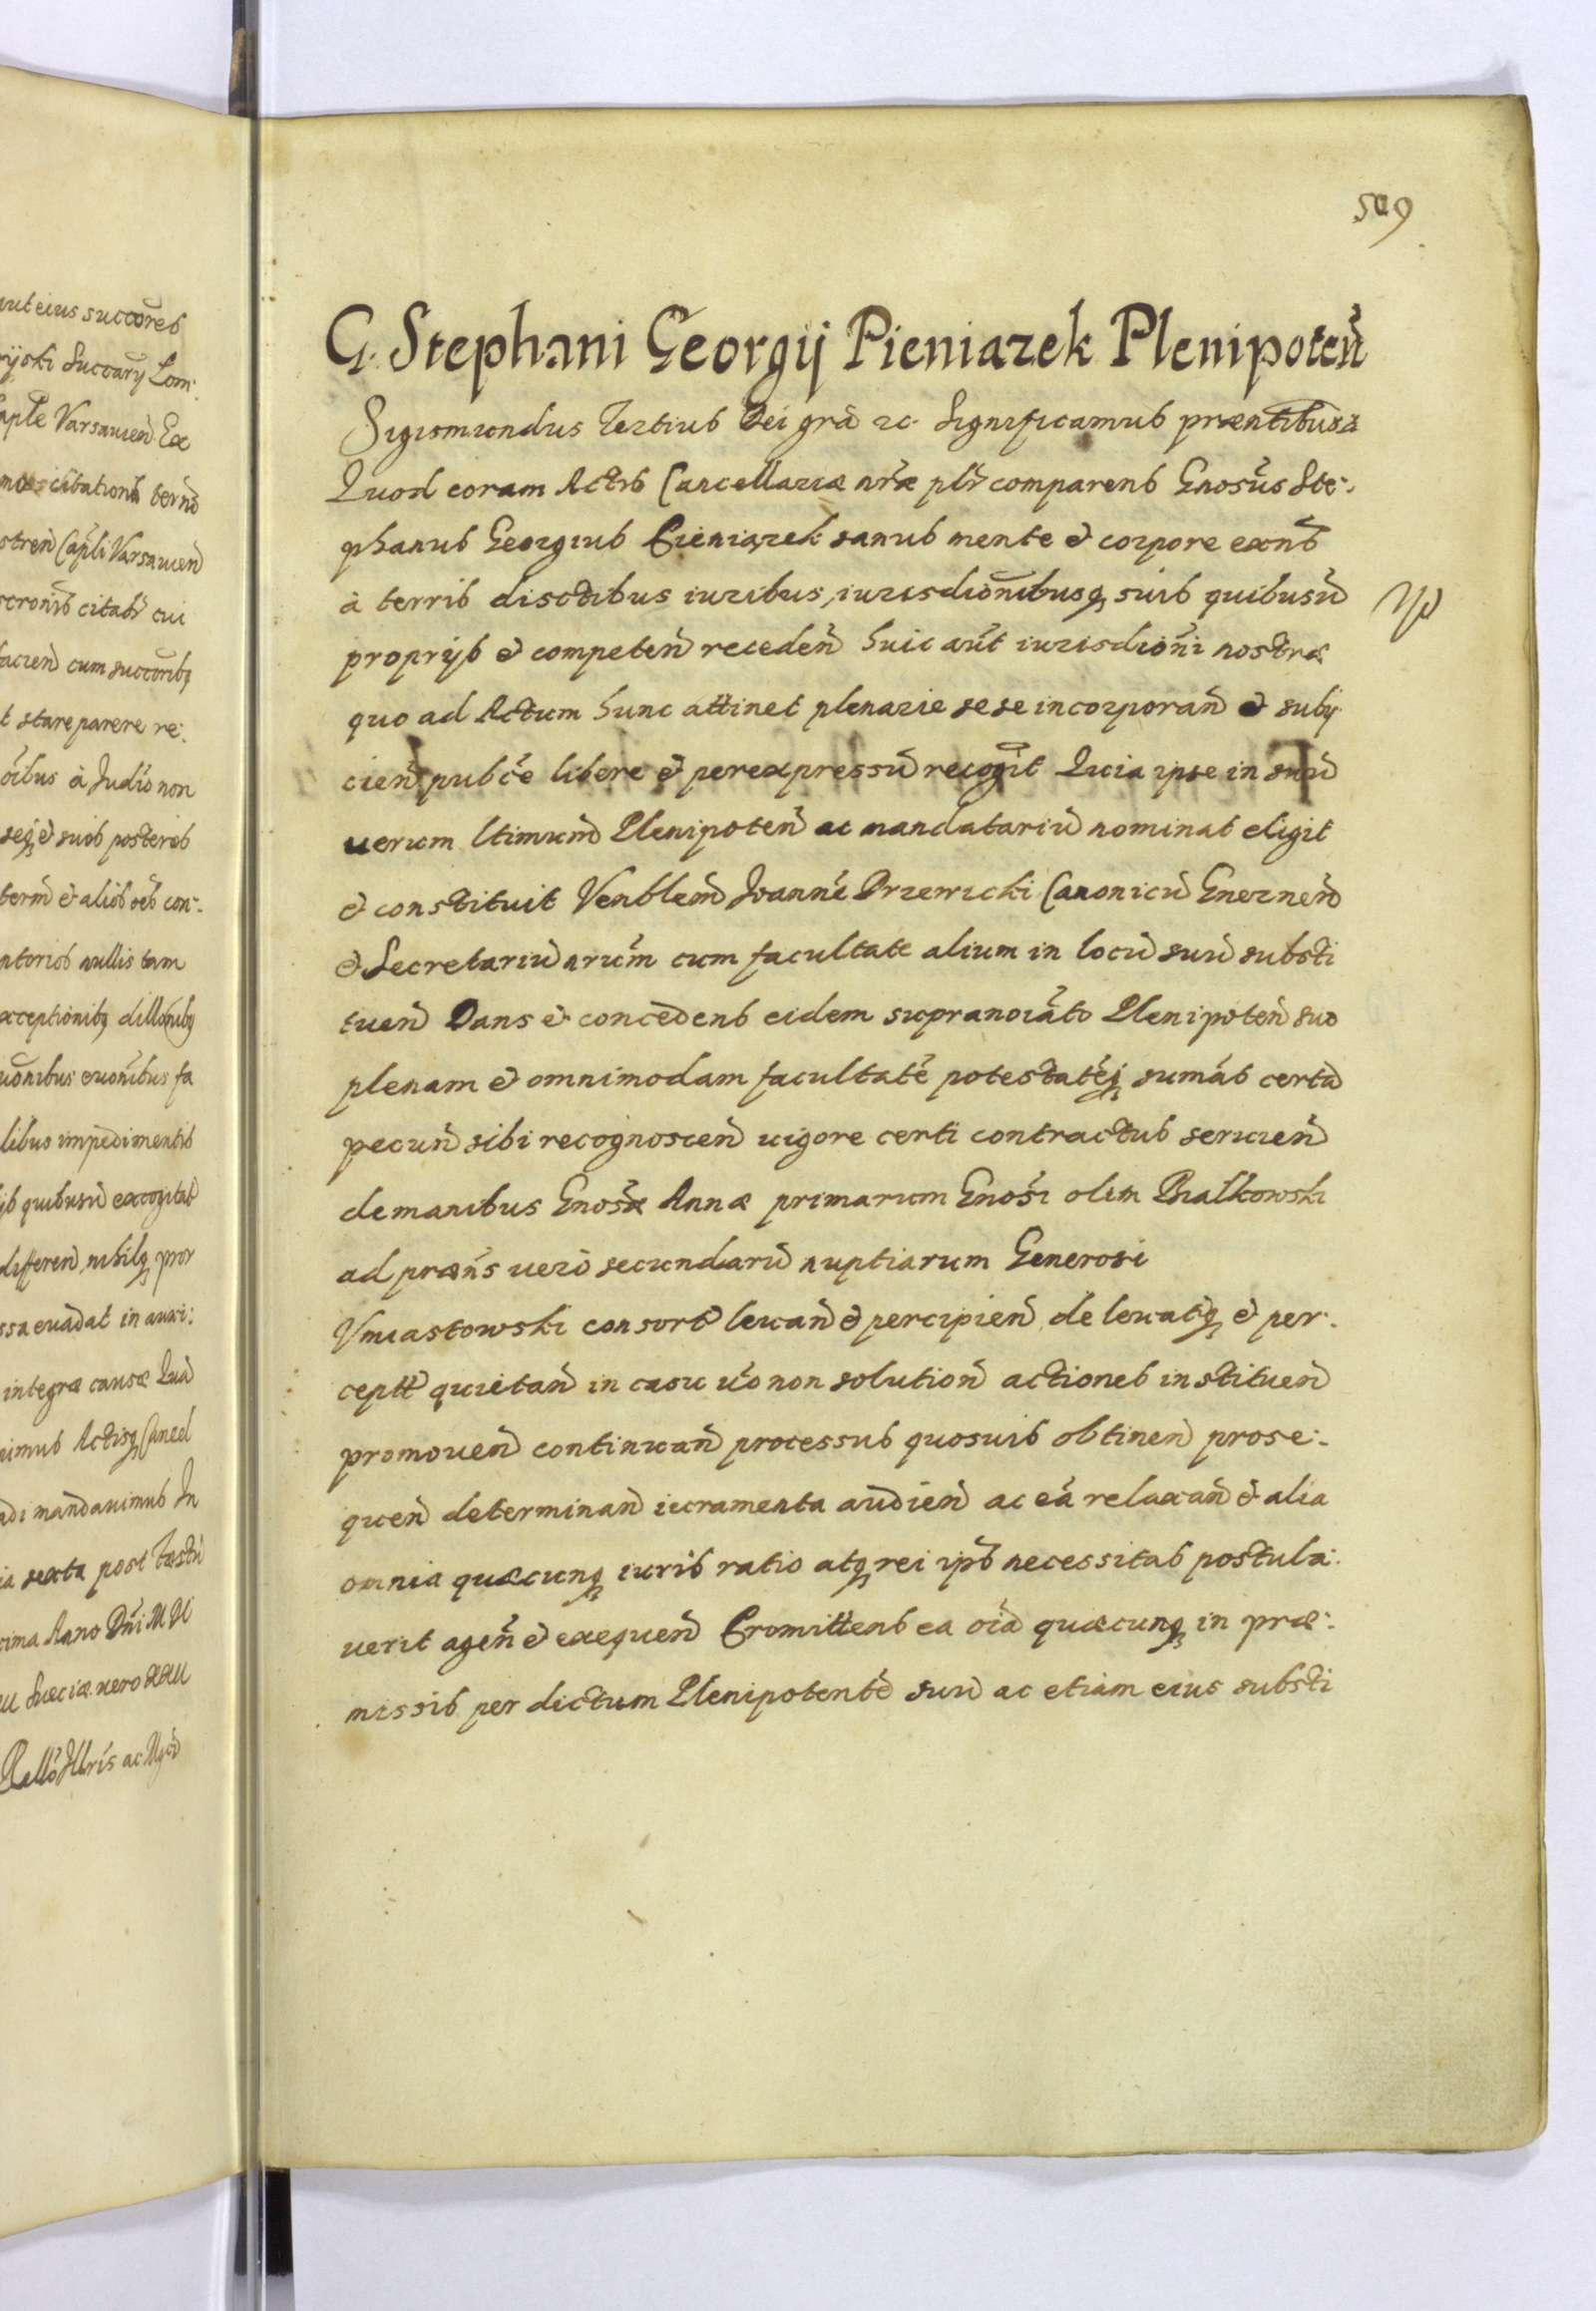 aut eius succores
Varsauien Ex
stren Capli Varsauien
citati cui
facien cum succoribq
t stare parere re:
non
seq et suis posteris
con:
nullis tam
impedimentis
quibusu excogitat
differen nihilq pror
ssa euadat in auxi:
integræ causæ Qua
nimus Actisq Cancel
mandauimus In
ia sexta post Festu
cima Anno Dni M D
509
G. Stephani Georgij Pieniazek Plenipoten
Sigismundus Tertius Dei gra zc. Significamus præntibus
Quod coram Actis Cancellariæ nræ plr comparens Gnosus Ste:
phanus Georgius Pieniązek sanus mente et corpore exns
à terris disctibus iuribus, iurisdionibusq suis quibusu
proprijs et competen receden huic aut iurisdioni nostræ
quo ad Actum hunc attinet plenarie sese incorporan et subij
cien publce libere et per expressu recogit Quia ipse in suu
uerum ltimum Plenipoten ac mandatariu nominat eligit
et constituit Venblem Joanne Przerucki Canonicu Gneznen
et Secretariu nrum cum facultate alium in locu suu substi
tuen Dans et concedens eidem supranoiato Plenipoten suo
plenam et omnimodam facultate potestateq sumas certa
pecun sibi recognoscen uigore certi contractus seruien
de manibus Gnosæ Annæ primarum Gnosi olim Białkowski
ad præns uero secundaru nuptiarum Generosi
Vmiastowski consort leuan et percipien de leuatq et per:
ceptt quietan in casu uo non solution actiones instituen
promouen continuan processus quosuis obtinen prose:
quen determinan iuramenta audien ac ea relaxan et alia
omnia quæcunq iuris ratio atq rei ips necessitas postula:
uerit agen et exequen Promittens ea oia quæcunq in præ:
missis per dictum Plenipotente suu ac etiam eius substi